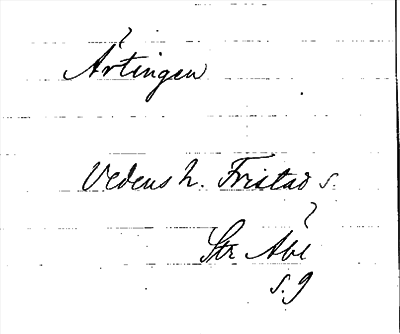 Årtingen
Vedens h. Fristad s.
Str Åbe
s. 9